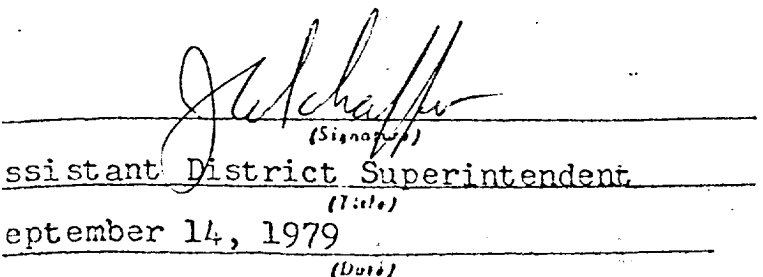 (Signature)
ssistant District Superintendent
(Title)
eptember 14, 1979
(Date)